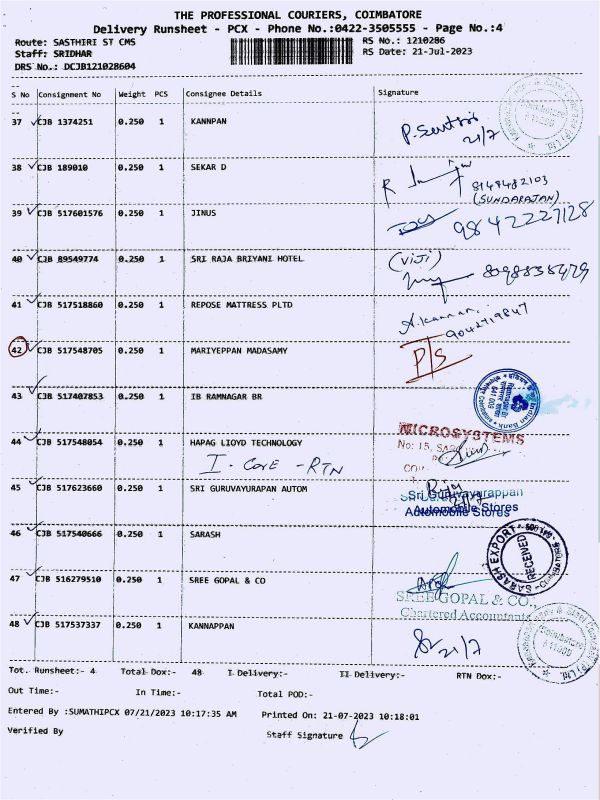 THE PROFESSIONAL COURIERS, COIMBATORE
Delivery Runsheet - PCX - Phone No.:0422-3505555 - Page No.:4
Route: SASTHIRI ST CMS RS No.: 1210286
Staff: SRIDHAR RS Date: 21-Jul-2023
DRS No.: DCJB121028604
S No Consignment No Weight PCS Consignee Details Signature
37 CJB 1374251 0.250 1 KANNPAN
21/7
38 CJB 189010 0.250 1 SEKAR D
8149482103
(SUNDARAJAN)
39 CJB 517601576 0.250 1 JINUS 9842227128
40 CJB 89549774 0.250 1 SRI RAJA BRIYANI HOTEL (VIJI)
41 CJB 517518860 0.250 1 REPOSE MATTRESS PLTD A.Kannan
9042719847
42 CJB 517548705 0.250 1 MARIYEPPAN MADASAMY P/S
43 CJB 517407853 0.250 1 IB RAMNAGAR BR
Indian Bank
MICROSYSTEMS
44 CJB 517548054 0.250 1 HAPAG LIOYD TECHNOLOGY No: 15,
I. Core - RTN
45 CJB 517623660 0.250 1 SRI GURUVAYURAPAN AUTOM
21/7
Sri Guruvayurappan
Automobile Stores
46 CJB 517540666 0.250 1 SARASH
SARASH EXPORT
RECEIVED
47 CJB 516279510 0.250 1 SREE GOPAL & CO
SREE GOPAL & CO.,
Chartered Accountants
48 CJB 517537337 0.250 1 KANNAPPAN
21/7
Tot. Runsheet:- 4 Total Dox:- 48 I Delivery:- II Delivery:- RTN Dox:-
Out Time:- In Time:- Total POD:-
Entered By :SUMATHIPCX 07/21/2023 10:17:35 AM Printed On: 21-07-2023 10:18:01
Verified By Staff Signature